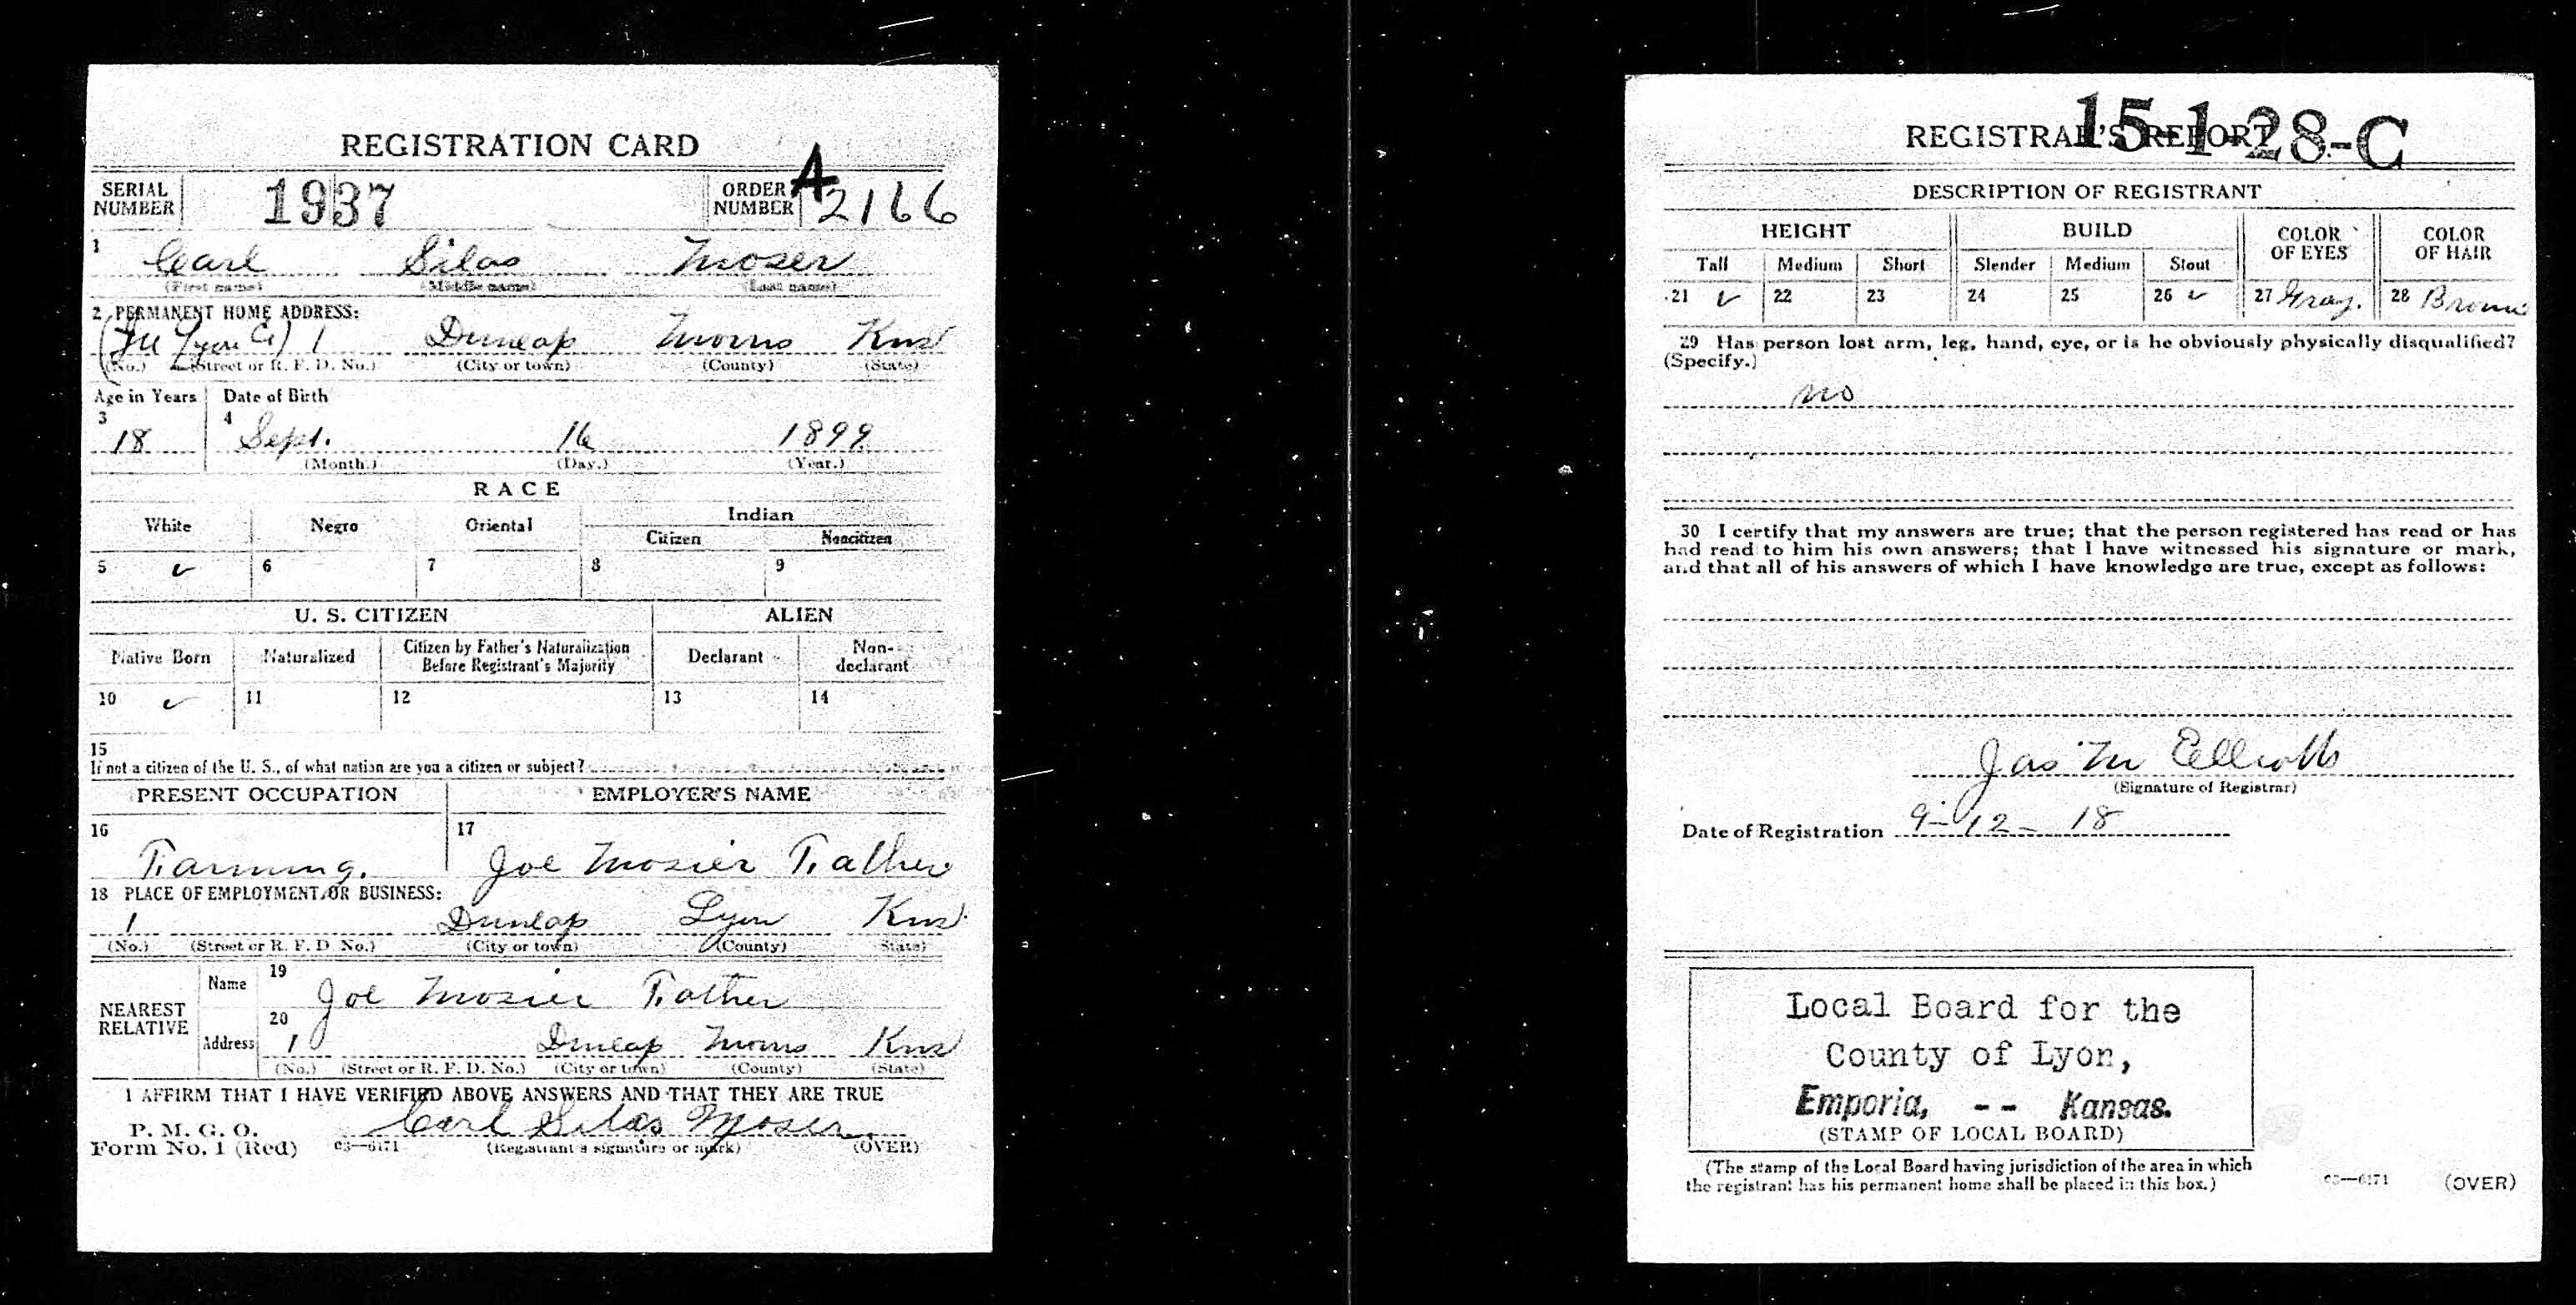 REGISTRATION CARD
SERIAL NUMBER 1937 ORDER NUMBER A 2166
1 Carl Silas Moser
(First name) (Middle name) (Last name)
2 PERMANENT HOME ADDRESS:
(In Lyon Co) 1 Dunlap Morris Kns
(No.) (Street or R. F. D. No.) (City or town) (County) (State)
Age in Years Date of Birth
3 4
18 Sept. 16 1899
(Month.) (Day.) (Year.)
RACE
White Negro Oriental Indian
Citizen Noncitizen
5 ✓ 6 7 8 9
U. S. CITIZEN ALIEN
Native Born Naturalized Citizen by Father's Naturalization Before Registrant's Majority Declarant Non-declarant
10 ✓ 11 12 13 14
15
If not a citizen of the U. S., of what nation are you a citizen or subject?
PRESENT OCCUPATION EMPLOYER'S NAME
16 17
Farming. Joe Mosier Father
18 PLACE OF EMPLOYMENT OR BUSINESS:
1 Dunlap Lyon Kns.
(No.) (Street or R. F. D. No.) (City or town) (County) (State)
NEAREST RELATIVE
Name 19 Joe Mosier Father
Address 20 1 Dunlap Morris Kns
(No.) (Street or R. F. D. No.) (City or town) (County) (State)
I AFFIRM THAT I HAVE VERIFIED ABOVE ANSWERS AND THAT THEY ARE TRUE
P. M. G. O.
Form No. 1 (Red) 03—6171 Carl Silas Moser
(Registrant's signature or mark) (OVER)
15-1-28-C
REGISTRAR'S REPORT
DESCRIPTION OF REGISTRANT
HEIGHT BUILD COLOR OF EYES COLOR OF HAIR
Tall Medium Short Slender Medium Stout
21 ✓ 22 23 24 25 26 ✓ 27 Gray. 28 Brown
29 Has person lost arm, leg, hand, eye, or is he obviously physically disqualified?
(Specify.)
no
30 I certify that my answers are true; that the person registered has read or has
had read to him his own answers; that I have witnessed his signature or mark,
and that all of his answers of which I have knowledge are true, except as follows:
Jas M Elliott
(Signature of Registrar)
Date of Registration 9-12-18
Local Board for the
County of Lyon,
Emporia, -- Kansas.
(STAMP OF LOCAL BOARD)
(The stamp of the Local Board having jurisdiction of the area in which
the registrant has his permanent home shall be placed in this box.)
03—6171 (OVER)